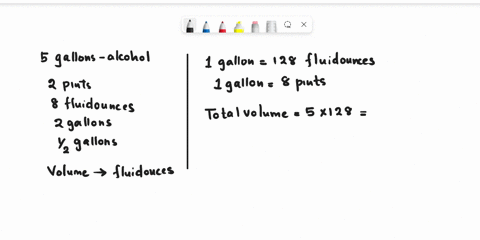 5 gallons - alcohol
2 pints
8 fluidounces
2 gallons
1/2 gallons
Volume → fluidouces
1 gallon = 128 fluidounces
1 gallon = 8 pints
Total volume = 5 × 128 =